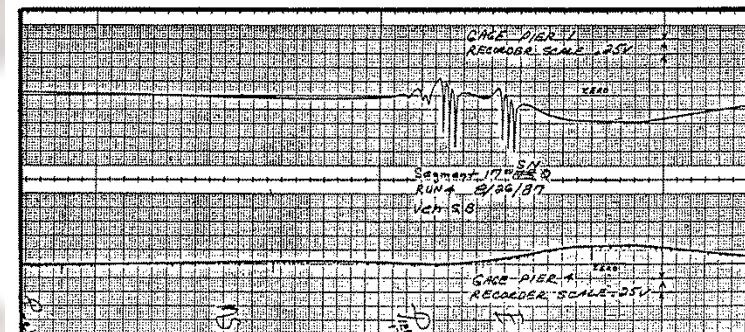 GAGE-PIER 1
RECORDER SCALE .25V
ZERO
SN
Segment 17
RUN 4 8/26/87
Veh SB
ZERO
GAGE-PIER 4
RECORDER SCALE .25V